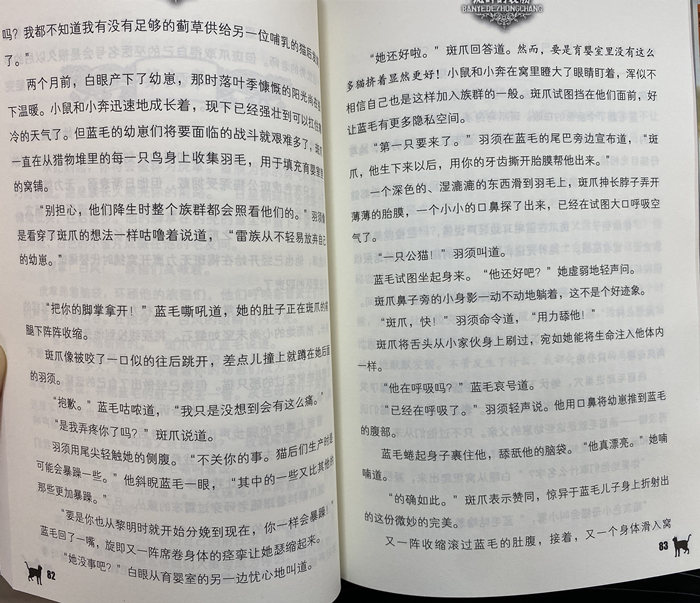 吗？我都不知道我有没有足够的蓟草供给另一位哺乳的猫后
了。”
两个月前，白眼产下了幼崽，那时落叶季慷慨的阳光尚
下温暖。小鼠和小奔迅速地成长着，现下已经强壮到可以扛住
冷的天气了。但蓝毛的幼崽们将要面临的战斗就艰难多了，斑爪
一直在从猎物堆里的每一只鸟身上收集羽毛，用于填充育婴室里
的窝铺。
“别担心，他们降生时整个族群都会照看他们的。”羽须像
是看穿了斑爪的想法一样咕噜着说道，“雷族从不轻易放弃自己
的幼崽。”
“把你的脚掌拿开！”蓝毛嘶吼道，她的肚子正在斑爪的
腿下阵阵收缩。
斑爪像被咬了一口似的往后跳开，差点儿撞上就蹲在她后面
的羽须。
“抱歉。”蓝毛咕哝道，“我只是没想到会有这么痛。”
“是我弄疼你了吗？”斑爪说道。
羽须用尾尖轻触她的侧腹。“不关你的事。猫后们生产时是
可能会暴躁一些。”他斜睨蓝毛一眼，“其中的一些又比其他的
那些更加暴躁。”
“要是你也从黎明时就开始分娩到现在，你一样会暴躁！”
蓝毛回了一嘴，旋即又一阵席卷身体的痉挛让她瑟缩起来。
“她没事吧？”白眼从育婴室的另一边忧心地叫道。
62
BANTEDEZHONGCHANG
“她还好啦。”斑爪回答道。然而，要是育婴室里没有这么
多猫挤着显然更好！小鼠和小奔在窝里瞪大了眼睛盯着，浑似不
相信自己也是这样加入族群的一般。斑爪试图挡在他们面前，好
让蓝毛有更多隐私空间。
“第一只要来了。”羽须在蓝毛的尾巴旁边宣布道，“斑
爪，他生下来以后，用你的牙齿撕开胎膜帮他出来。”
一个深色的、湿漉漉的东西滑到羽毛上，斑爪抻长脖子弄开
薄薄的胎膜，一个小小的口鼻探了出来，已经在试图大口呼吸空
气了。
“一只公猫！”羽须叫道。
蓝毛试图坐起身来。“他还好吧？”她虚弱地轻声问。
斑爪鼻子旁的小身影一动不动地躺着，这不是个好迹象。
“斑爪，快！”羽须命令道，“用力舔他！”
斑爪将舌头从小家伙身上刷过，宛如她能将生命注入他体内
一样。
“他在呼吸吗？”蓝毛哀号道。
“已经在呼吸了。”羽须轻声说。他用口鼻将幼崽推到蓝毛
的腹部。
蓝毛蜷起身子裹住他，舔舐他的脑袋。“他真漂亮。”她喃
喃道。
“的确如此。”斑爪表示赞同，惊异于蓝毛儿子身上折射出
的这份微妙的完美。
又一阵收缩滚过蓝毛的肚腹，接着，又一个身体滑入窝
63